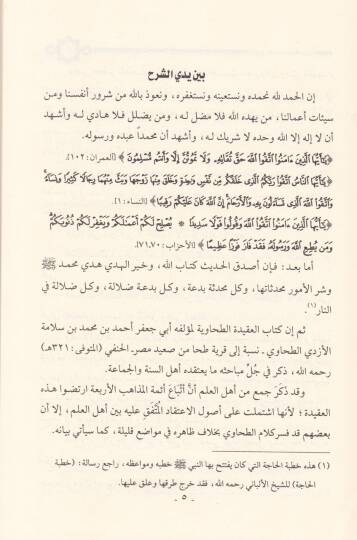 بين يدي الشرح
إن الحمد لله نحمده ونستعينه ونستغفره، ونعوذ بالله من شرور أنفسنا ومن
سيئات أعمالنا، من يهده الله فلا مضل لـه، ومن يضلل فـلا هـادي لـه وأشهد
أن لا إله إلا الله وحده لا شريك لـه، وأشهد أن محمداً عبده ورسوله.
﴿ يَٰٓأَيُّهَا ٱلَّذِينَ ءَامَنُوا۟ ٱتَّقُوا۟ ٱللَّهَ حَقَّ تُقَاتِهِۦ وَلَا تَمُوتُنَّ إِلَّا وَأَنتُم مُّسْلِمُونَ ﴾ [آل عمران: ١٠٢].
﴿ يَٰٓأَيُّهَا ٱلنَّاسُ ٱتَّقُوا۟ رَبَّكُمُ ٱلَّذِى خَلَقَكُم مِّن نَّفْسٍ وَٰحِدَةٍ وَخَلَقَ مِنْهَا زَوْجَهَا وَبَثَّ مِنْهُمَا رِجَالًا كَثِيرًا وَنِسَآءً
وَٱتَّقُوا۟ ٱللَّهَ ٱلَّذِى تَسَآءَلُونَ بِهِۦ وَٱلْأَرْحَامَ إِنَّ ٱللَّهَ كَانَ عَلَيْكُمْ رَقِيبًا ﴾ [النساء: ١].
﴿ يَٰٓأَيُّهَا ٱلَّذِينَ ءَامَنُوا۟ ٱتَّقُوا۟ ٱللَّهَ وَقُولُوا۟ قَوْلًا سَدِيدًا * يُصْلِحْ لَكُمْ أَعْمَٰلَكُمْ وَيَغْفِرْ لَكُمْ ذُنُوبَكُمْ
وَمَن يُطِعِ ٱللَّهَ وَرَسُولَهُۥ فَقَدْ فَازَ فَوْزًا عَظِيمًا ﴾ [الأحزاب: ٧٠، ٧١].
أما بعـد: فـإن أصدق الحديث كتاب الله، وخير الهـدي هـدي محمـد ﷺ
وشر الأمور محدثاتها، وكل محدثة بدعة، وكـل بدعـة ضـلالة، وكـل ضلالة في
النار(١).
ثم إن كتاب العقيدة الطحاوية لمؤلفه أبي جعفر أحمد بن محمد بن سلامة
الأزدي الطحاوي ـ نسبة إلى قرية طحا من صعيد مصر ـ الحنفي (المتوفى: ٣٢١هـ)
رحمه الله، ذكر في جُلِّ مباحثه ما يعتقده أهل السنة والجماعة.
وقد ذَكَرَ جمع من أهل العلم أنَّ أَتْبَاعَ أئمة المذاهب الأربعة ارتضوا هـذه
العقيدة ؛ لأنها اشتملت على أصول الاعتقاد المتَّفَقِ عليه بين أهل العلم، إلا أن
بعضهم قد فسر كلام الطحاوي بخلاف ظاهره في مواضع قليلة، كما سيأتي بيانه.
(١) هذه خطبة الحاجة التي كان يفتتح بها النبي ﷺ خطبه ومواعظه، راجع رسالة: (خطبة
الحاجة) للشيخ الألباني رحمه الله، فقد خرج طرقها وعلق عليها.
- ٥ -